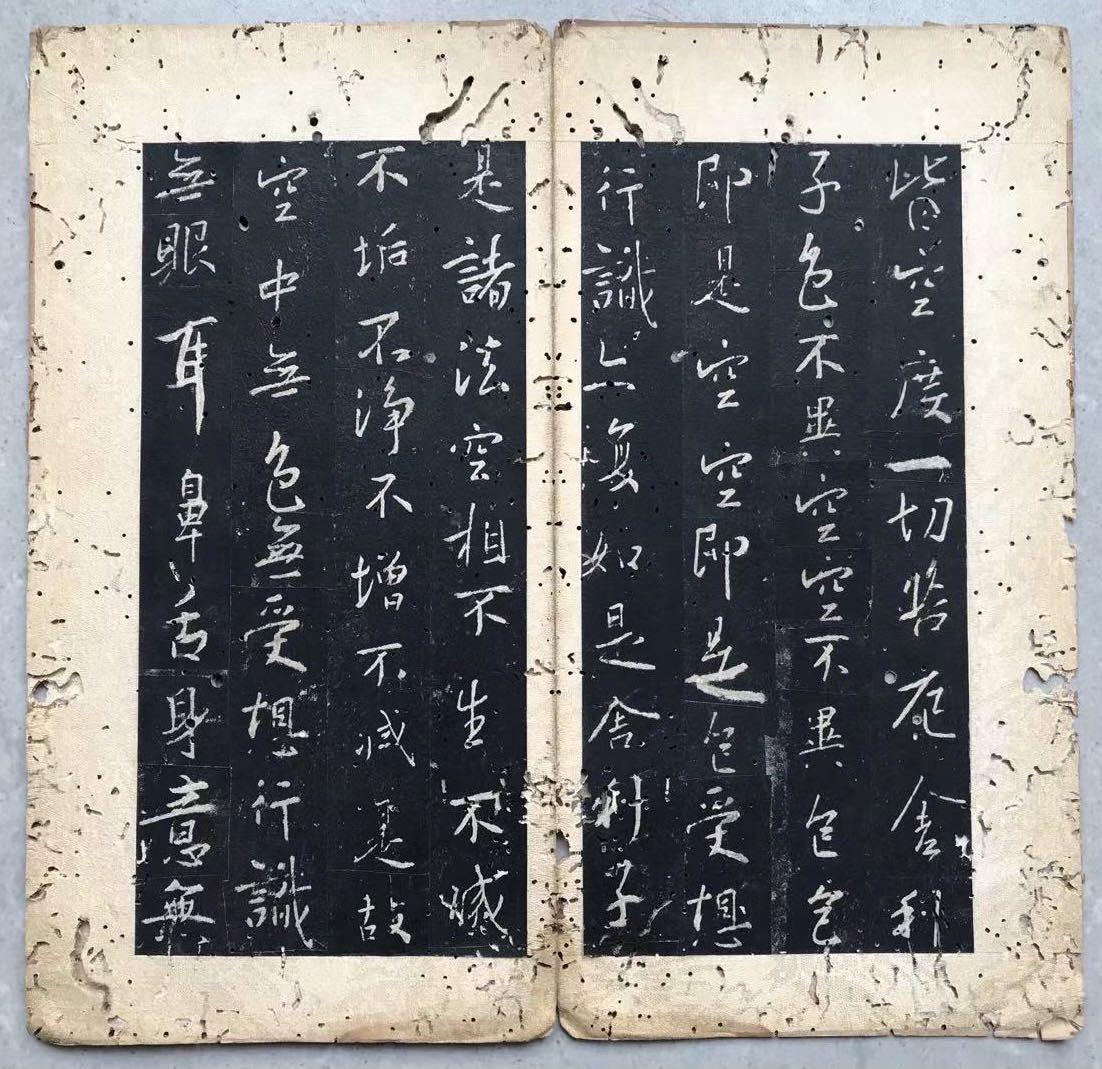 皆空度一切苦厄舍利
子色不異空空不異色色
即是空空即是色受想
行識亦復如是舍利子
是諸法空相不生不滅
不垢不淨不增不減是故
空中無色無受想行識
無眼耳鼻舌身意無